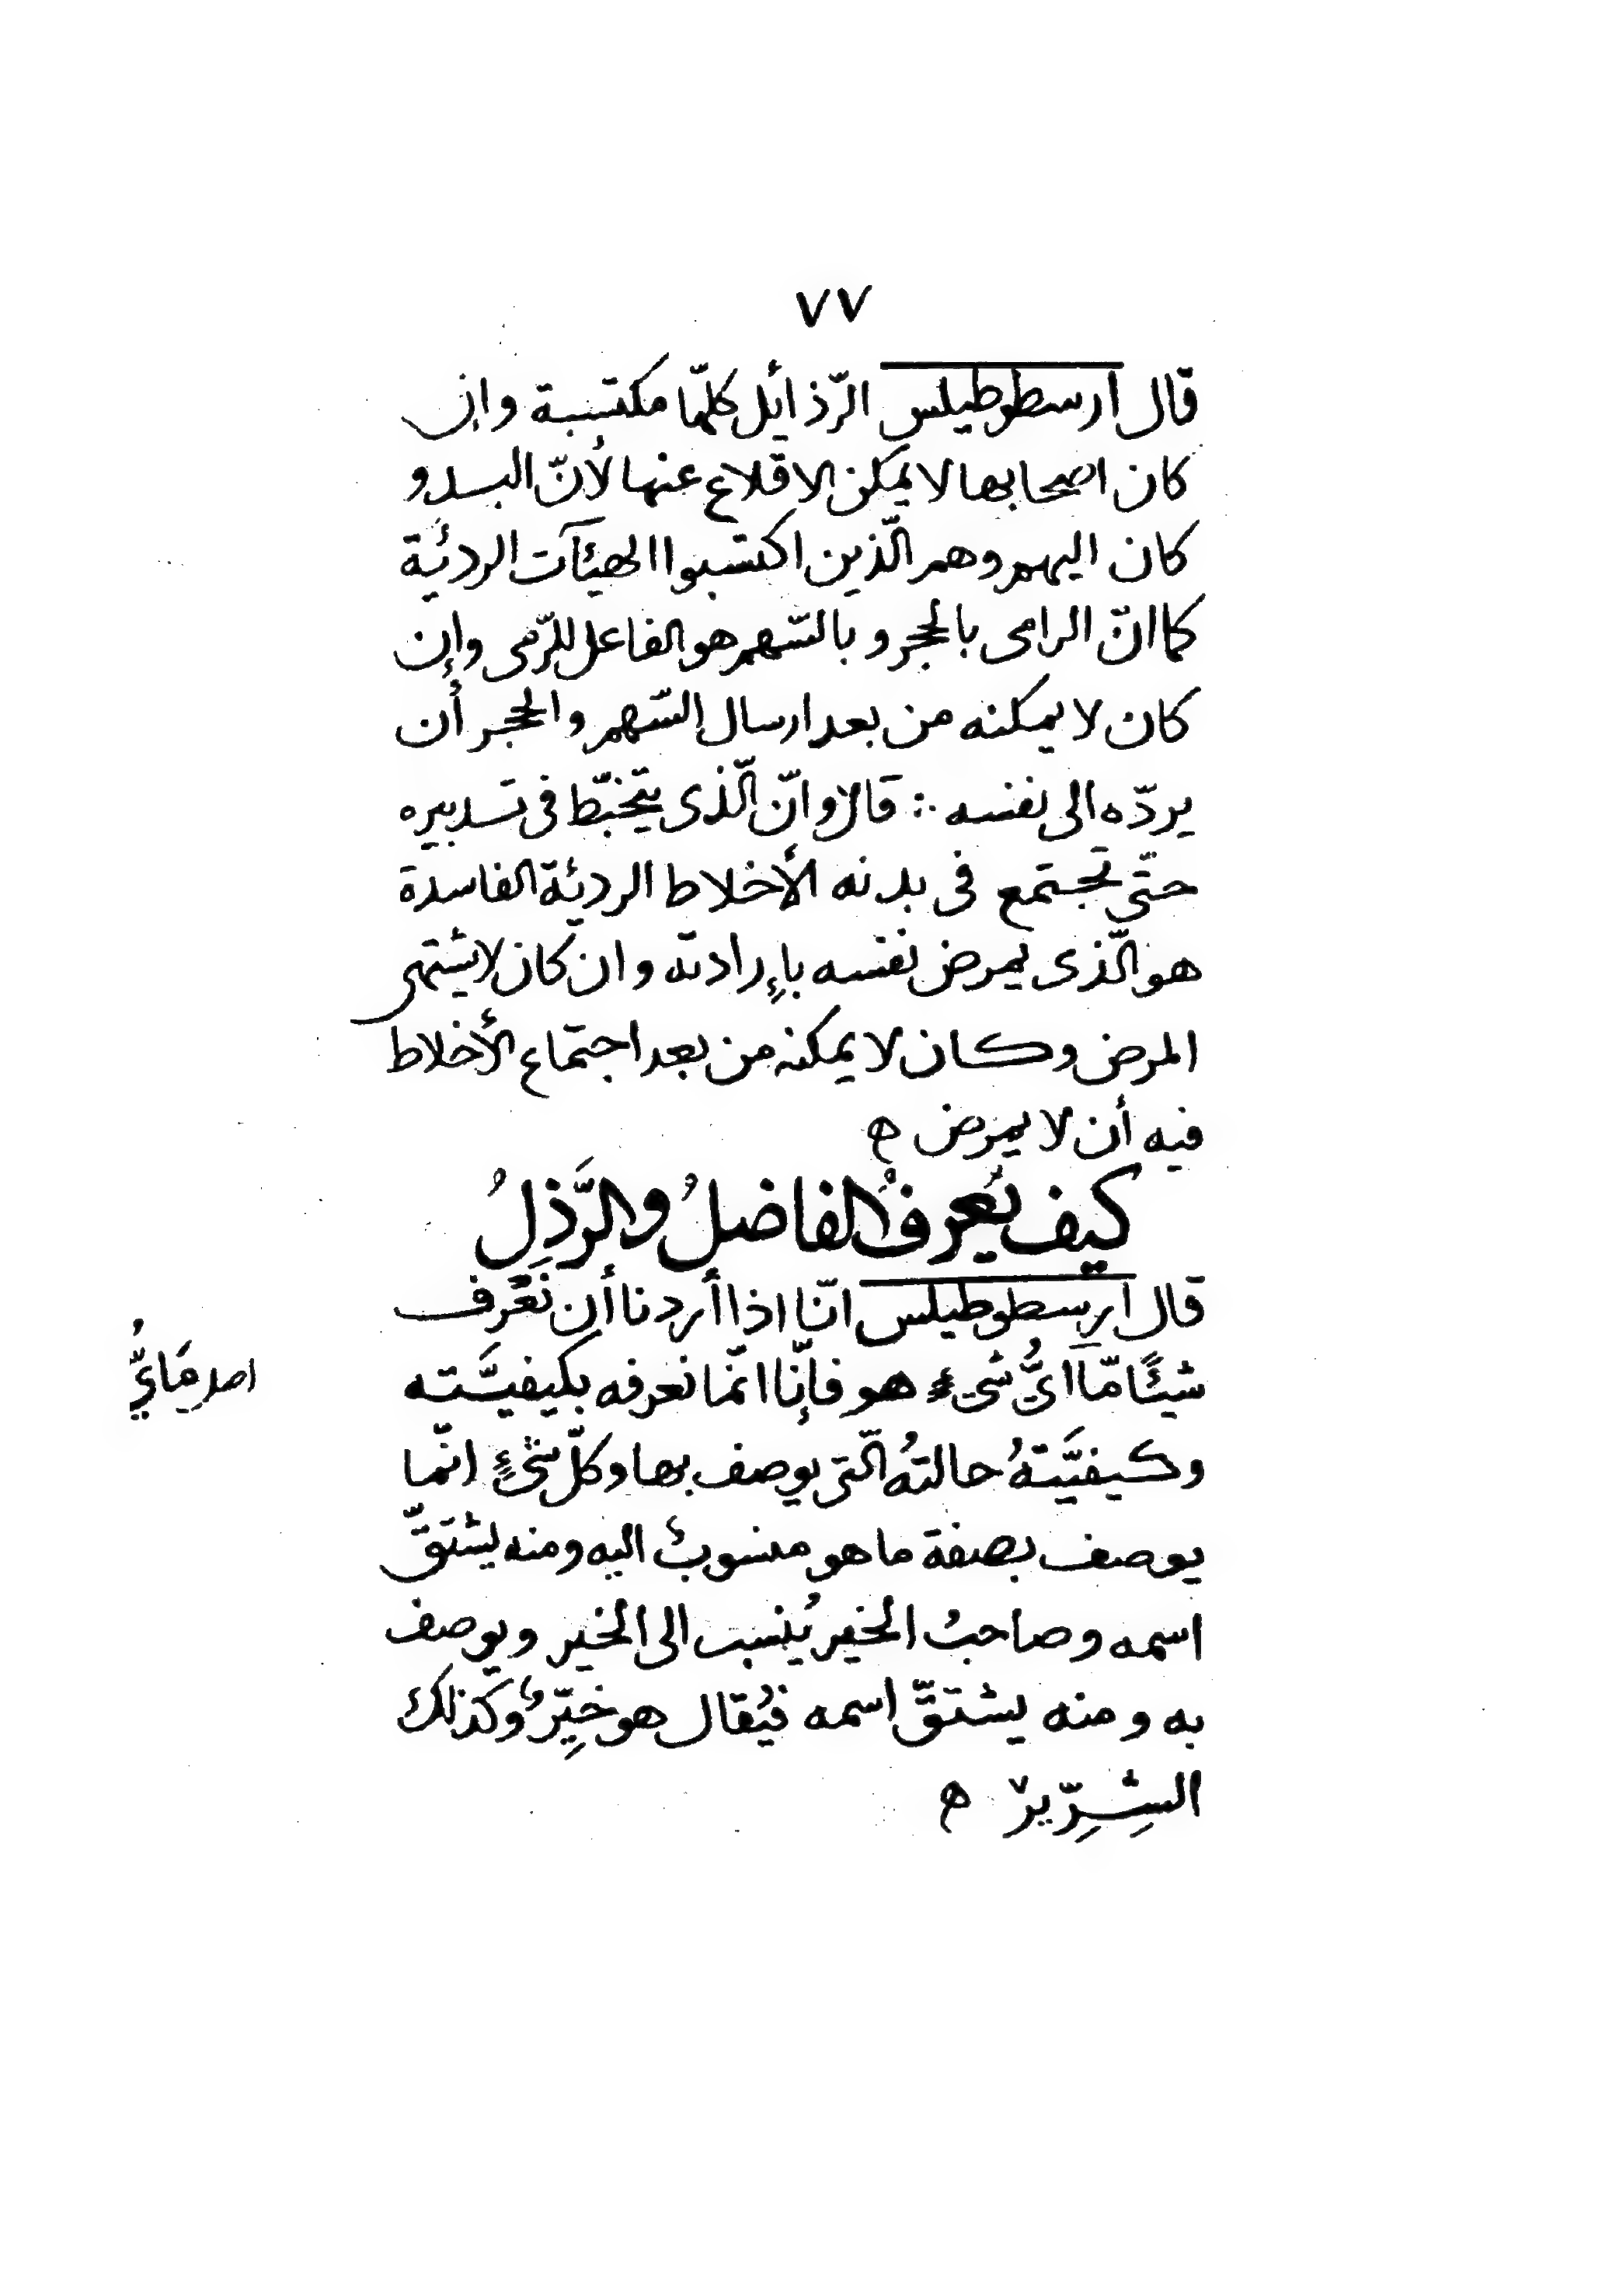 ٧٧
قال ارسطوطيلس الرّذائل كلّها مكتسبة وان
كان اصحابها لا يمكن الاقلاع عنها لأنّ البدو
كان اليهم وهم الّذين اكتسبوا الهيئآت الرديئة
كما انّ الرامى بالحجر و بالسّهم هو الفاعل للرّمى وإن
كان لا يمكنه من بعد ارسال السّهم والحجر أن
يردّه الى نفسه ∴ قال وانّ الّذى يتخبّط فى تدبيره
حتّى تجتمع فى بدنه الأخلاط الرديئة الفاسدة
هو الّذى يمرض نفسه بإرادته وان كان لا يشتهى
المرض وكان لا يمكنه من بعد اجتماع الأخلاط
فيه أن لا يمرض ه
كيف يُعرفُ الفاضلُ والرَّذِلُ
قال ارسطوطيلس انّا اذا أردنا أن نَعْرف
شيئًا مّا اىُّ شىء هو فإنّا انّما نعرفه بكيفيَّته
وكيفيَّتهُ حالتهُ الّتى يوصف بها وكلّ شىءٍ انّما
يوصف بصفة ما هو منسوبٌ اليه ومنه يشتقّ
اسمه وصاحبُ الخير يُنسب الى الخير ويوصف
به ومنه يشتقّ اسمه فيُقال هو خيِّرٌ وكذلك
الشِّرِّير ه
مَايُّ